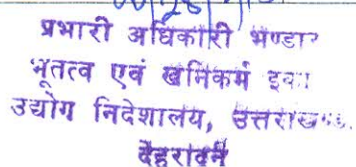 प्रभारी अधिकारी भण्डार
भूतत्व एवं खनिकर्म इका
उद्योग निदेशालय, उत्तराखण्ड
देहरादून